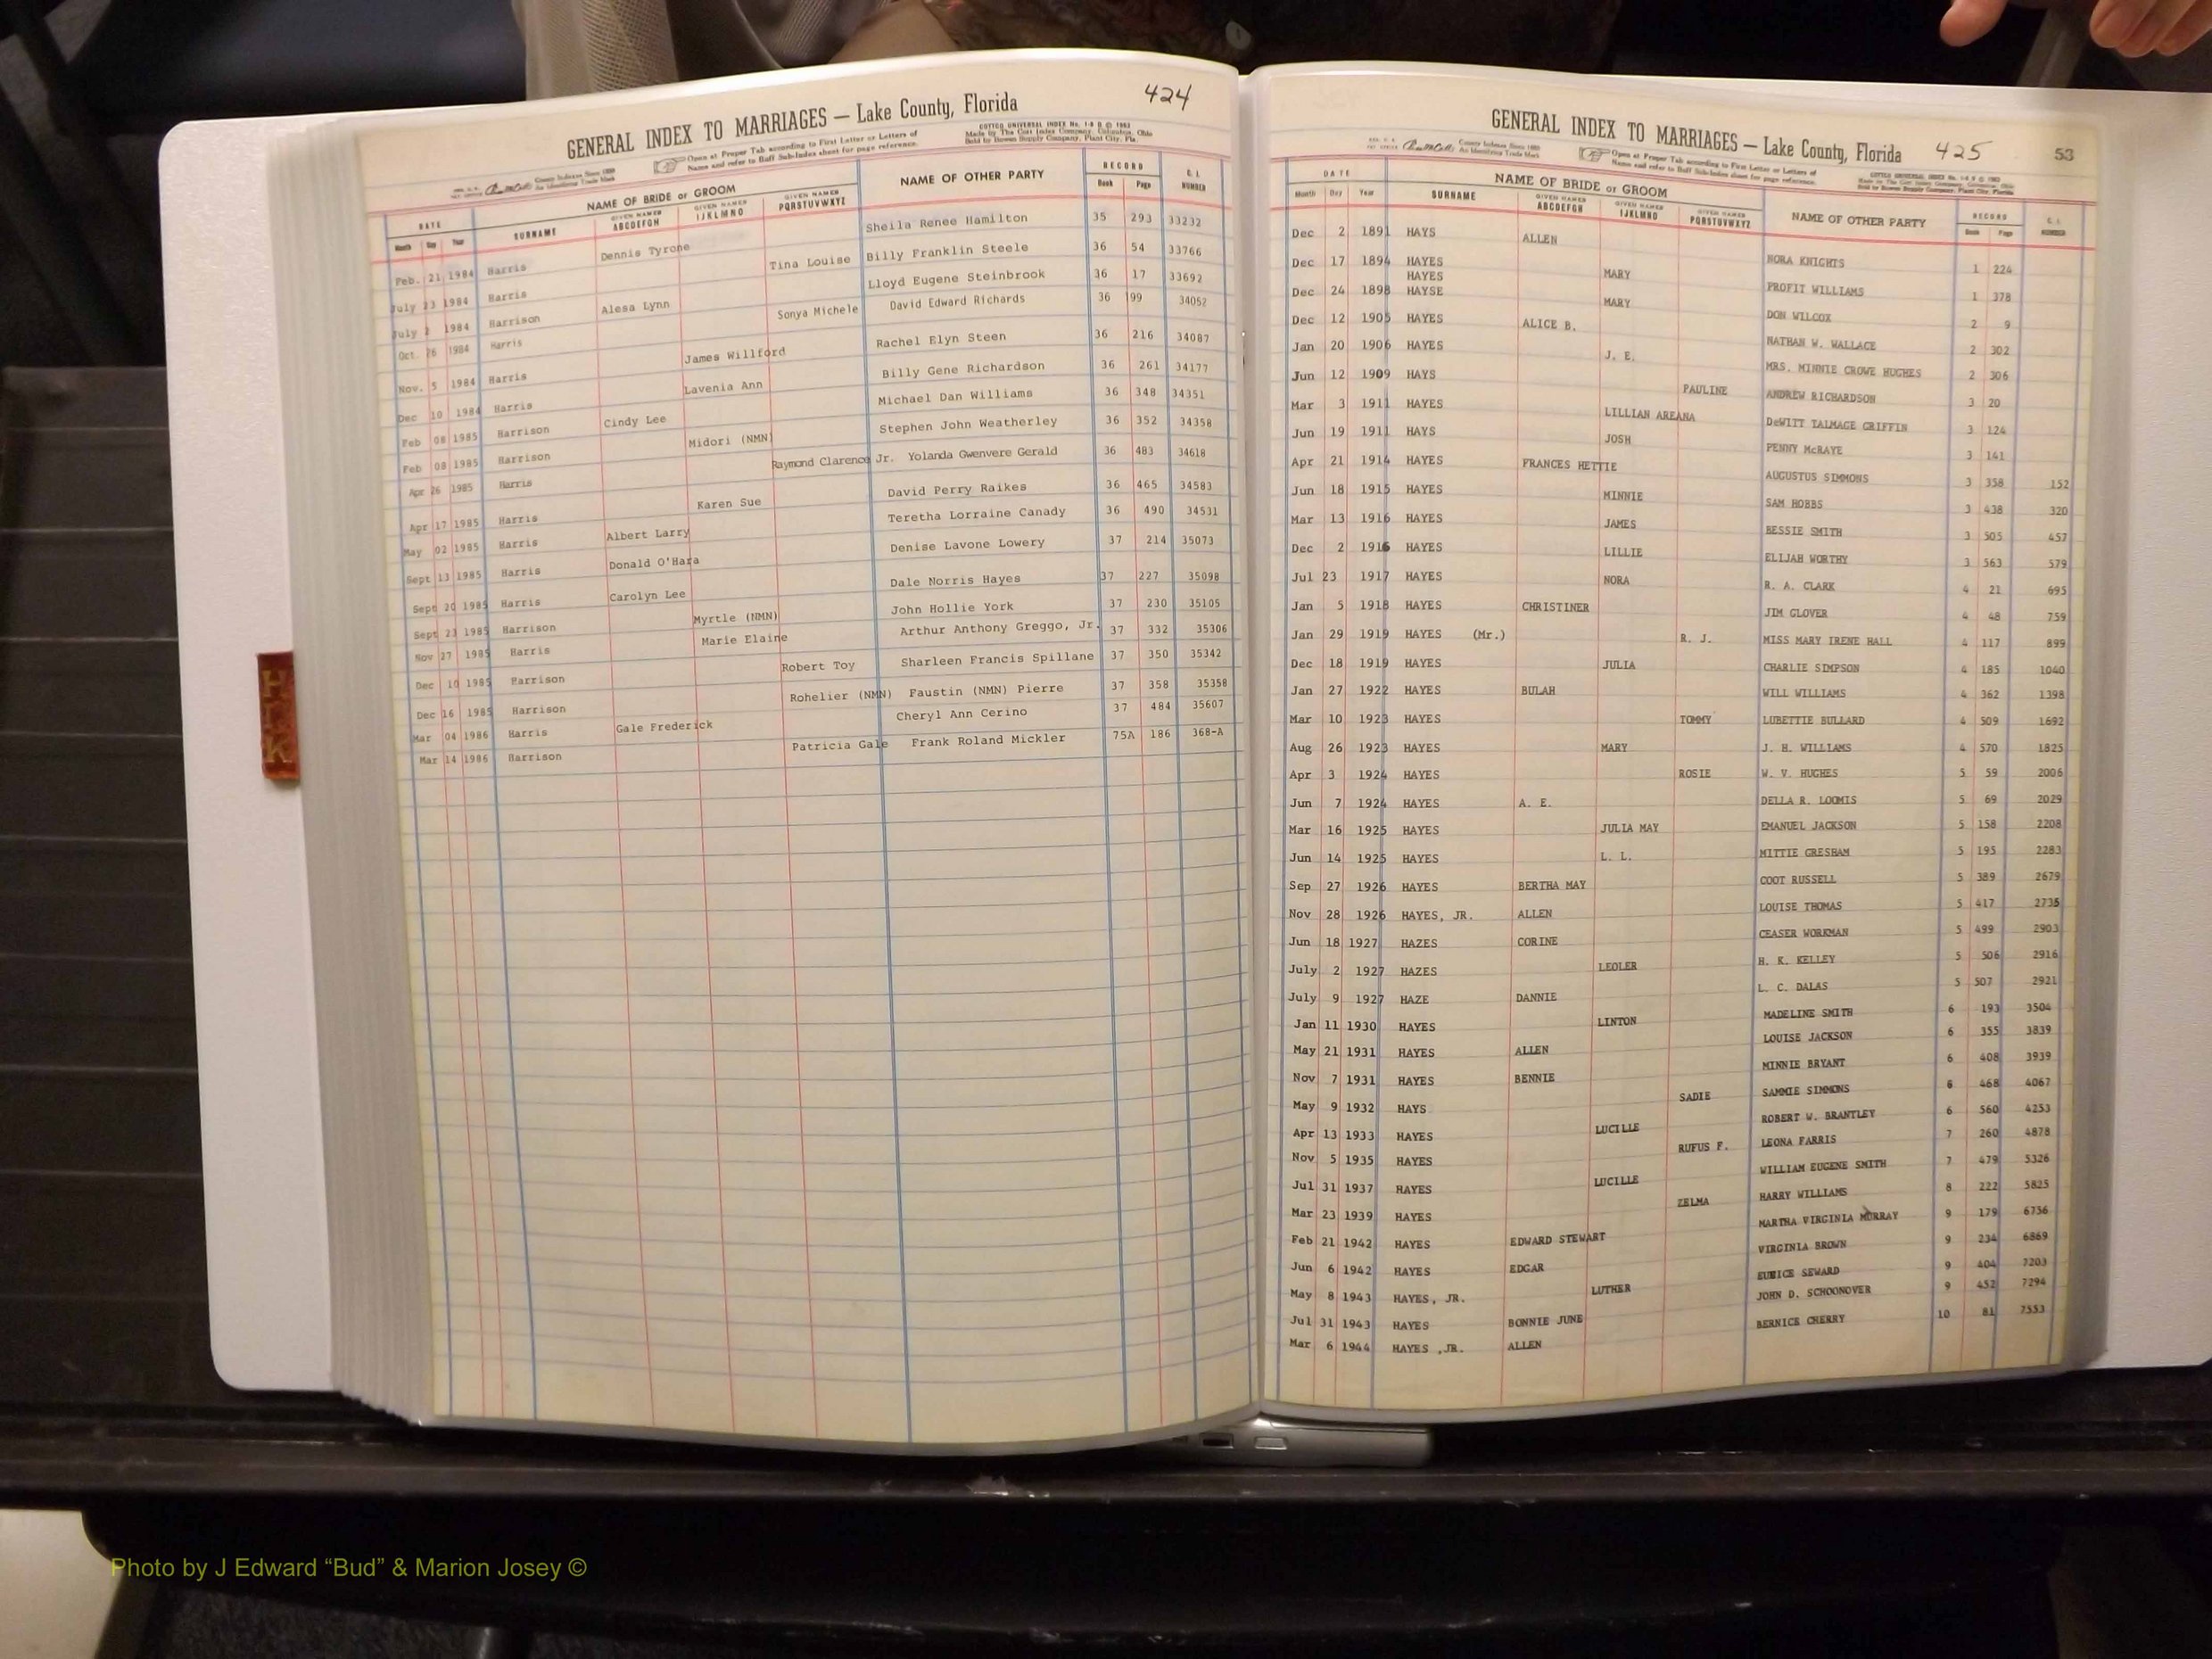 424
GENERAL INDEX TO MARRIAGES — Lake County, Florida
COTTCO UNIVERSAL INDEX No. 1-8 B © 1963
Made by The Cott Index Company, Columbus, Ohio
Sold by Bowen Supply Company, Plant City, Fla.
County Indexes Since 1888
An Identifying Trade Mark
Open at Proper Tab according to First Letter or Letters of
Name and refer to Buff Sub-Index sheet for page reference.
DATE NAME OF BRIDE or GROOM NAME OF OTHER PARTY RECORD C. I. NUMBER
Month Day Year SURNAME GIVEN NAMES ABCDEFGH GIVEN NAMES IJKLMNO GIVEN NAMES PQRSTUVWXYZ Book Page
Feb. 21 1984 Harris Dennis Tyrone Sheila Renee Hamilton 35 293 33232
July 23 1984 Harris Tina Louise Billy Franklin Steele 36 54 33766
July 2 1984 Harrison Alesa Lynn Lloyd Eugene Steinbrook 36 17 33692
Oct. 26 1984 Harris Sonya Michele David Edward Richards 36 199 34052
Nov. 5 1984 Harris James Willford Rachel Elyn Steen 36 216 34087
Dec 10 1984 Harris Lavenia Ann Billy Gene Richardson 36 261 34177
Feb 08 1985 Harrison Cindy Lee Michael Dan Williams 36 348 34351
Feb 08 1985 Harrison Midori (NMN) Stephen John Weatherley 36 352 34358
Apr 26 1985 Harris Raymond Clarence Jr. Yolanda Gwenvere Gerald 36 483 34618
Apr 17 1985 Harris Karen Sue David Perry Raikes 36 465 34583
May 02 1985 Harris Albert Larry Teretha Lorraine Canady 36 490 34531
Sept 13 1985 Harris Donald O'Hara Denise Lavone Lowery 37 214 35073
Sept 20 1985 Harris Carolyn Lee Dale Norris Hayes 37 227 35098
Sept 23 1985 Harrison Myrtle (NMN) John Hollie York 37 230 35105
Nov 27 1985 Harris Marie Elaine Arthur Anthony Greggo, Jr. 37 332 35306
Dec 10 1985 Harrison Robert Toy Sharleen Francis Spillane 37 350 35342
Dec 16 1985 Harrison Rohelier (NMN) Faustin (NMN) Pierre 37 358 35358
Mar 04 1986 Harris Gale Frederick Cheryl Ann Cerino 37 484 35607
Mar 14 1986 Harrison Patricia Gale Frank Roland Mickler 75A 186 368-A
GENERAL INDEX TO MARRIAGES — Lake County, Florida 425 53
County Indexes Since 1888
An Identifying Trade Mark
Open at Proper Tab according to First Letter or Letters of
Name and refer to Buff Sub-Index sheet for page reference.
DATE NAME OF BRIDE or GROOM NAME OF OTHER PARTY RECORD C. I. NUMBER
Month Day Year SURNAME GIVEN NAMES ABCDEFGH GIVEN NAMES IJKLMNO GIVEN NAMES PQRSTUVWXYZ Book Page
Dec 2 1891 HAYS ALLEN NORA KNIGHTS 1 224
Dec 17 1894 HAYES MARY PROFIT WILLIAMS 1 378
HAYES
Dec 24 1898 HAYSE MARY DON WILCOX 2 9
Dec 12 1905 HAYES ALICE B. NATHAN W. WALLACE 2 302
Jan 20 1906 HAYES J. E. MRS. MINNIE CROWE HUGHES 2 306
Jun 12 1909 HAYS PAULINE ANDREW RICHARDSON 3 20
Mar 3 1911 HAYES LILLIAN AREANA DeWITT TALMAGE GRIFFIN 3 124
Jun 19 1911 HAYS JOSH PENNY McRAYE 3 141
Apr 21 1914 HAYES FRANCES HETTIE AUGUSTUS SIMMONS 3 358 152
Jun 18 1915 HAYES MINNIE SAM HOBBS 3 438 320
Mar 13 1916 HAYES JAMES BESSIE SMITH 3 505 457
Dec 2 1916 HAYES LILLIE ELIJAH WORTHY 3 563 579
Jul 23 1917 HAYES NORA R. A. CLARK 4 21 695
Jan 5 1918 HAYES CHRISTINER JIM GLOVER 4 48 759
Jan 29 1919 HAYES (Mr.) R. J. MISS MARY IRENE HALL 4 117 899
Dec 18 1919 HAYES JULIA CHARLIE SIMPSON 4 185 1040
Jan 27 1922 HAYES BULAH WILL WILLIAMS 4 362 1398
Mar 10 1923 HAYES TOMMY LUBETTIE BULLARD 4 509 1692
Aug 26 1923 HAYES MARY J. H. WILLIAMS 4 570 1825
Apr 3 1924 HAYES ROSIE W. V. HUGHES 5 59 2006
Jun 7 1924 HAYES A. E. DELLA R. LOOMIS 5 69 2029
Mar 16 1925 HAYES JULIA MAY EMANUEL JACKSON 5 158 2208
Jun 14 1925 HAYES L. L. MITTIE GRESHAM 5 195 2283
Sep 27 1926 HAYES BERTHA MAY COOT RUSSELL 5 389 2679
Nov 28 1926 HAYES, JR. ALLEN LOUISE THOMAS 5 417 2735
Jun 18 1927 HAZES CORINE CEASER WORKMAN 5 499 2903
July 2 1927 HAZES LEOLER H. K. KELLEY 5 506 2916
July 9 1927 HAZE DANNIE L. C. DALAS 5 507 2921
Jan 11 1930 HAYES LINTON MADELINE SMITH 6 193 3504
May 21 1931 HAYES ALLEN LOUISE JACKSON 6 355 3839
Nov 7 1931 HAYES BENNIE MINNIE BRYANT 6 408 3939
May 9 1932 HAYS SADIE SAMMIE SIMMONS 6 468 4067
Apr 13 1933 HAYES LUCILLE ROBERT W. BRANTLEY 6 560 4253
Nov 5 1935 HAYES RUFUS F. LEONA FARRIS 7 260 4878
Jul 31 1937 HAYES LUCILLE WILLIAM EUGENE SMITH 7 479 5326
Mar 23 1939 HAYES ZELMA HARRY WILLIAMS 8 222 5825
Feb 21 1942 HAYES EDWARD STEWART MARTHA VIRGINIA MURRAY 9 179 6756
Jun 6 1942 HAYES EDGAR VIRGINIA BROWN 9 234 6869
May 8 1943 HAYES, JR. LUTHER EUNICE SEWARD 9 404 7203
Jul 31 1943 HAYES BONNIE JUNE JOHN D. SCHOONOVER 9 452 7294
Mar 6 1944 HAYES ,JR. ALLEN BERNICE CHERRY 10 81 7553
Photo by J Edward “Bud” & Marion Josey ©